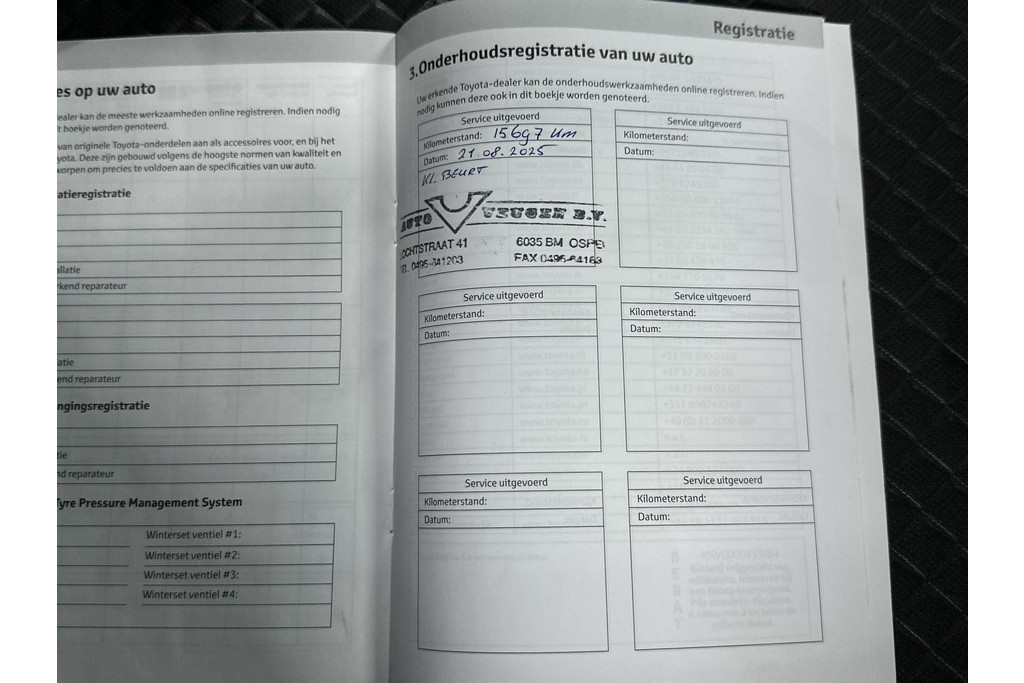 es op uw auto
ealer kan de meeste werkzaamheden online registreren. Indien nodig
t boekje worden genoteerd.
van originele Toyota-onderdelen aan als accessoires voor, en bij het
yota. Deze zijn gebouwd volgens de hoogste normen van kwaliteit en
worpen om precies te voldoen aan de specificaties van uw auto.
atieregistratie
allatie
rkend reparateur
atie
end reparateur
ngingsregistratie
tie
nd reparateur
Tyre Pressure Management System
Winterset ventiel #1:
Winterset ventiel #2:
Winterset ventiel #3:
Winterset ventiel #4:
Registratie
3.Onderhoudsregistratie van uw auto
Uw erkende Toyota-dealer kan de onderhoudswerkzaamheden online registreren. Indien
nodig kunnen deze ook in dit boekje worden genoteerd.
Service uitgevoerd
Kilometerstand: 15697 km
Datum: 21.08.2025
KL. BEURT
AUTO VEUGEN B.V.
OCHTSTRAAT 41 6035 BM OSPE
EL. 0495-641203 FAX 0495-64163
Service uitgevoerd
Kilometerstand:
Datum:
Service uitgevoerd
Kilometerstand:
Datum:
Service uitgevoerd
Kilometerstand:
Datum:
Service uitgevoerd
Kilometerstand:
Datum:
Service uitgevoerd
Kilometerstand:
Datum: